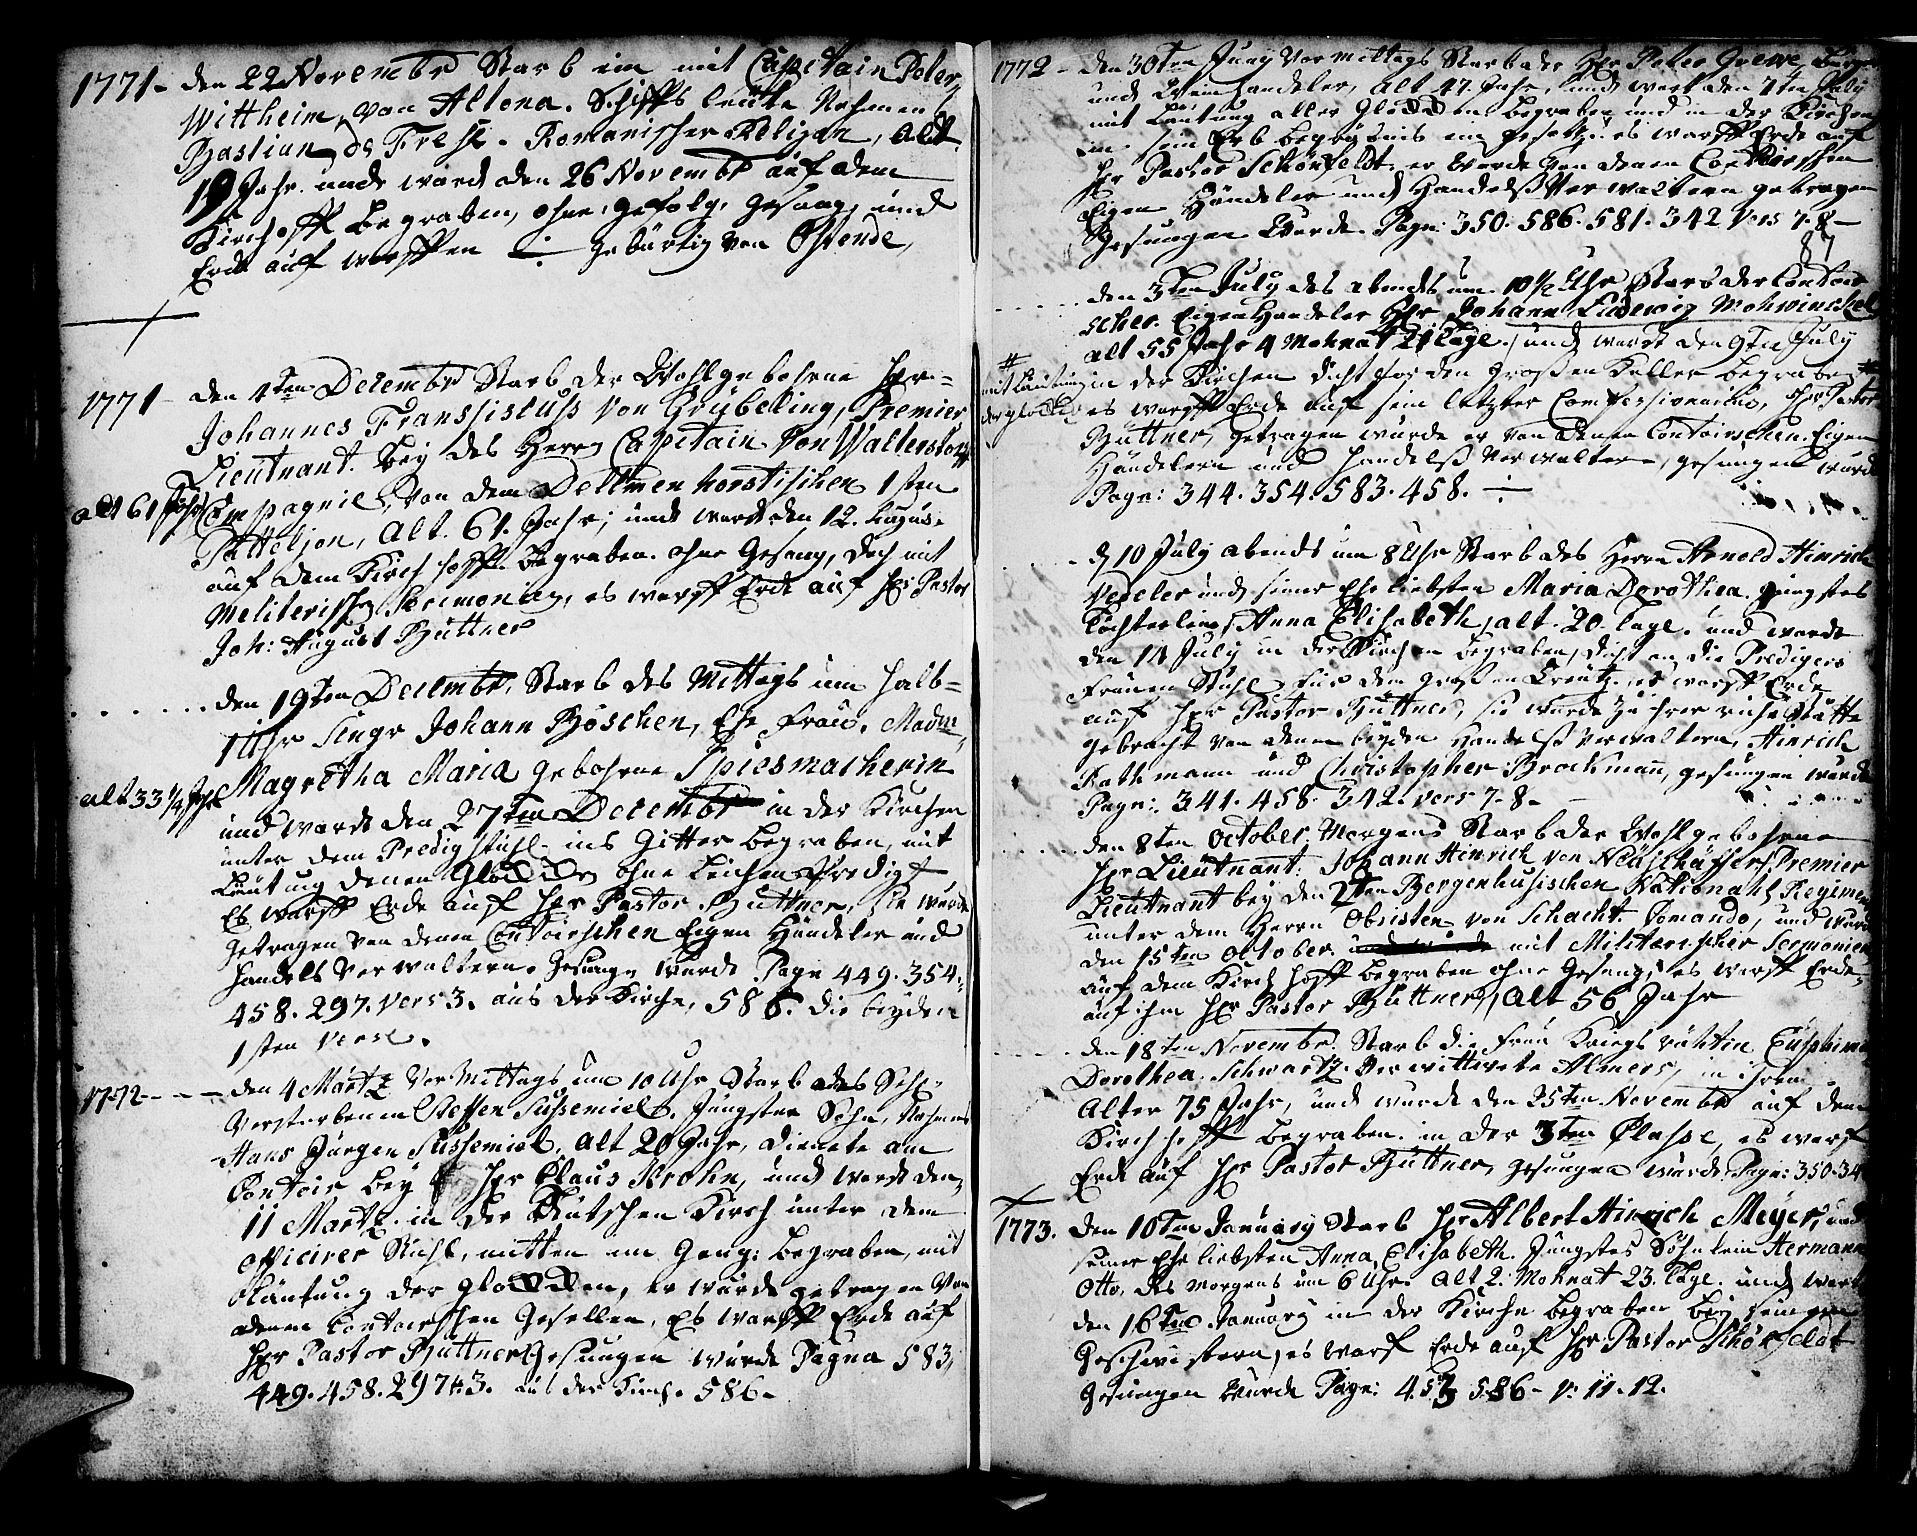 1771 - den 22 Novembr Starb ein mit Capitain Peter
Wittheim, von Altona. Schiffs leute Nahmens
Bastian de Frese. Romanischer Religon, Alt
19 Jahr. und ward den 26 Novembr auf dem
Kirchoff begraben, ohne, gefolg, gesang, und
Erde auf werffen ÷ gebürtig von Ostende,
1771 - den 1ten Decembr Starb der Wohlgebohrne Hr
Johannes Franssiscuss von Grybelling, Premier
Lieutnant. bey des Herrn Capitain von Walterstorff
alt 61 Jahr Compagnie, von dem Dellmenhorstischen 1sten
Batteljon, Alt. 61. Jahr, und ward den 12.
auf dem Kirch hoff begraben. ohne Gesang, doch mit
Meliterischen Seremonien, es warff Erde auf Hr Pastor
Joh: August Büttner
den 19ten Decembr, Starb des Mittags um halb
1 Uhr Johann Böschen, Ehe Frau, Madme
Magretha Maria gebohrne Spiesmacherin
alt 33 1/4 Jahr
und warde den 27ten Decembr in der Kirchen
unter dem Predigstuhl ins Gitter begraben, mit
Leutung denen Glocken ohne Leichen Predigt
Es warff Erde auf Hr Pastor Büttner, sie wurde
getragen von denen Contoirschen Eigen Händeler und
Handels Verwaltern. Gesungen wurde Pagn 449. 354.
458. 297. vers 3. aus der Kirche, 586. die beyden
1sten verse.
1772 - - - den 4 Martz Vor Mittags um 10 Uhr Starb des Sehl.
Verstorbenen Steffen Sussemiel, Jüngster Sohn, Nahmens
Hans Jürgen Sussemiel, Alt 20 Jahr, dienete am
Contoir bey Hr Claus Krohn, und ward den
11 Martz in der Teutschen Kirch unter dem
officirer Stuhl, mitten im Gang begraben, mit
Läutung der Glocken, er wurde getragen von
denen Contoirschen Gesellen, Es warff Erde auf
Hr Pastor Büttner Gesungen wurde Pagna 583,
449. 458. 297 v 3. aus der Kirch. 586 -
1772 - den 30ten Juny Vor mittags Starb der Hr Peter Grewe,
und Weinhandeler, Alt 47 Jahr, und ward den 7ten July
mit Lautung aller Glocken begraben und in der Kirchen
in sein Erb begräbnis ein gesetzt. es warff Erde auf
Hr Pastor Schönfeldt, er wurde von denen Contoirschen
Eigen Händeler und Handelss Verwaltern getragen
Gesungen wurde Pagn: 350. 586. 581. 342 vers 7. 8 -
87
den 3ten July des abends um 10 1/2 Uhr Starb der Contoir
scher Eigen Handeler Hr Johann Ludewig Mohwinckel
alt 55 Jahr 4 Mohnat 21 Tage, und wurde den 9ten July
# mit Lautung der Glocken
in der Kirchen dicht vor den grossen Keller begraben #
es warff Erde auf sein letzter Hr Pastor
Büttner, getragen wurde er von denen Contoirschen Eigen
Händelern und Handelss Verwaltern, gesungen wurde
Pagn: 344. 354. 583. 458. ÷
d 10 July abends um 8 Uhr Starb des Herrn Arnold Hinrich
Vedeler und seiner Ehe liebsten Maria Dorothea jüngstes
Töchterlein, Anna Elisabeth, alt. 20. Tage. und wurde
den 14 July in der Kirchen begraben, dicht an die Prediger
Frauen Stuhl, für dem grossen Creutz. es warff Erde
auf Hr Pastor Büttner, sie wurde zu ihrer ruhe Stätte
gebracht von denen beyden Handelss Verwaltern, Hinrich
Rathmann und Christopher Brockmann, gesungen wurde
Pagn: 341. 458. 342. vers 7. 8 -
den 8ten October, Morgens Starb der Wohlgebohrne
Hr Lieutnant: Johann Hinrich von Neuschäffer, Premier
Lieutnant bey den 2ten Bergenhusischen Nationahl Regimen
unter dem Herrn Obristen von Schacht Comando, und wurd
den 15ten October. mit Militærischer Sermonien
auf dem Kirch hoff begraben ohne Gesang, es warff Erde
auf ihm Hr Pastor Büttner, Alt 56 Jahr
den 18ten Novembr. Starb die Frau Kriegs räthin
Dorothea Schwartz. Verwittwete Almers, in ihrem
Alter 75 Jahr, und wurde den 25ten Novembr auf dem
Kirch hoff begraben. in der 3ten Classe, es warf
Erde auf Hr Pastor Büttner, gesungen wurde Pagn: 350. 34
1773. den 10ten January Starb Hr Albert Hinrich Meyer, und
seiner Ehe liebsten Anna Elisabeth. Jüngstes Söhnlein Hermann
Otto, des Morgens um 6 Uhr. Alt 2. Mohnat 23. Tage. und ward
den 16ten January in der Kirche begraben bey seinen
Geschwistern, es warf Erde auf Hr Pastor Schönfeldt
Gesungen wurde Pagn: 453 586 - v: 11. 12.